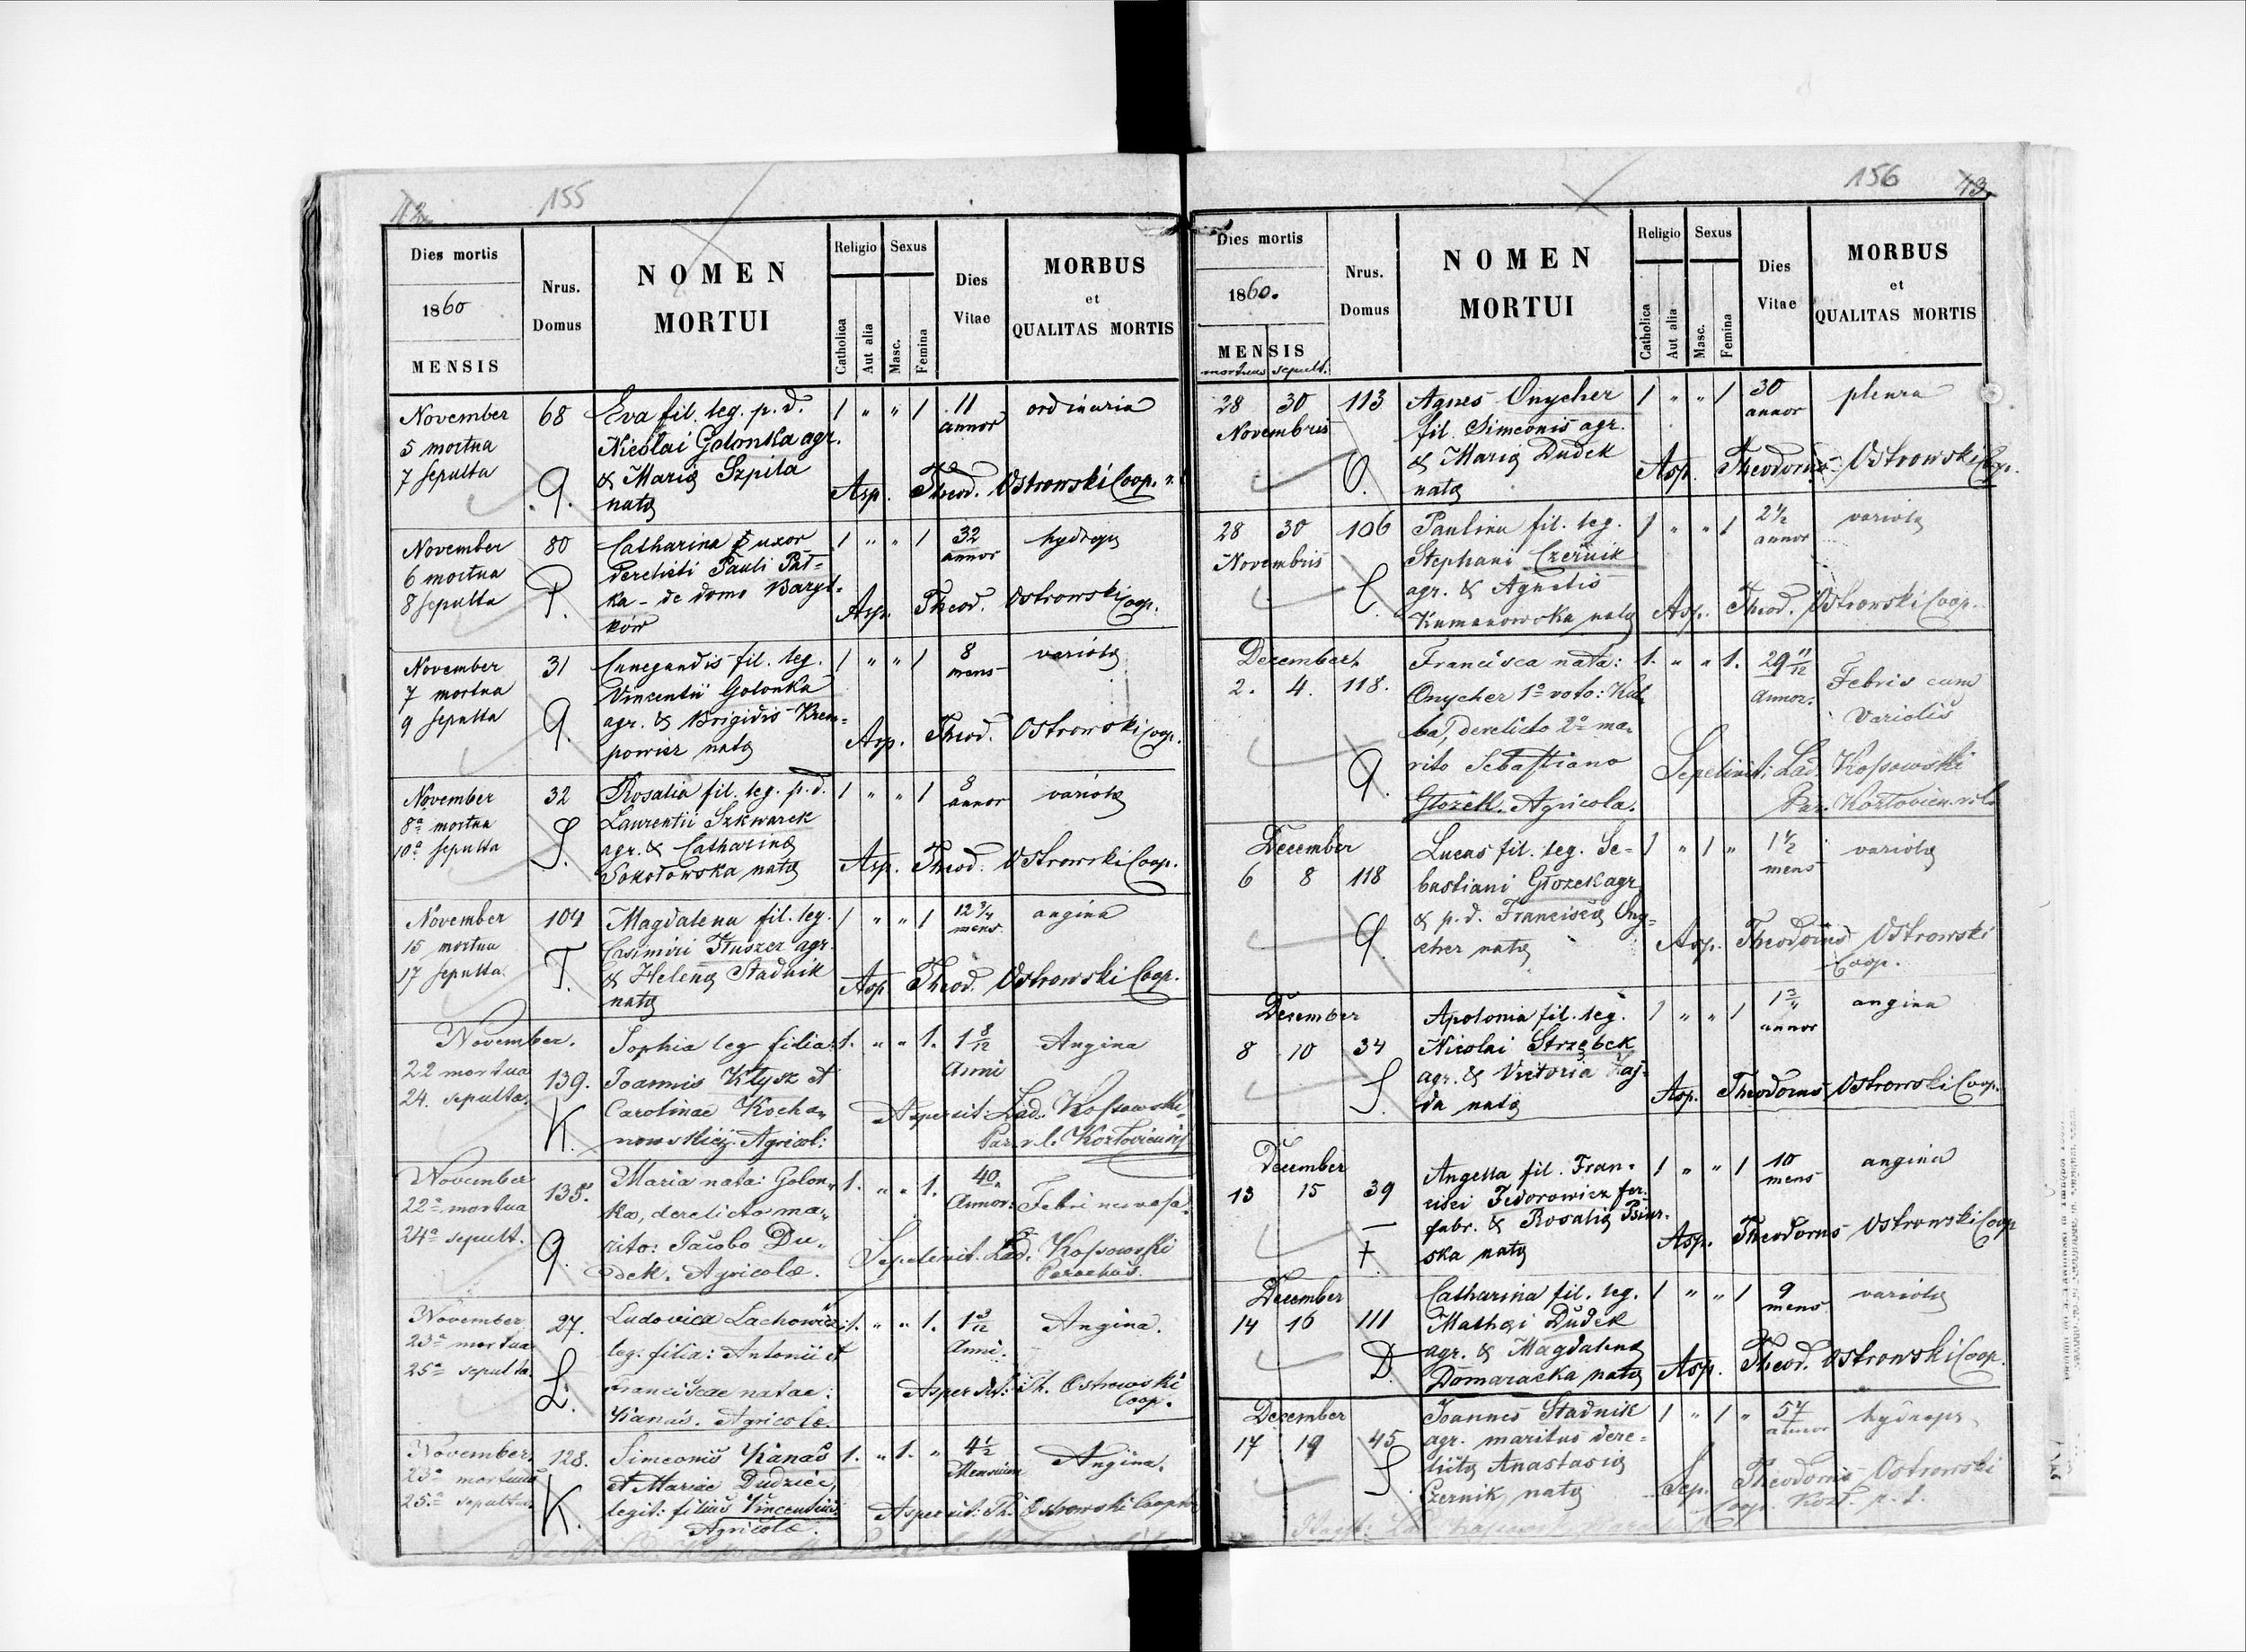 155
Dies mortis
1860
MENSIS
Nrus.
Domus
NOMEN
MORTUI
Religio
Catholica
Aut alia
Sexus
Masc.
Femina
Dies
Vitae
MORBUS
et
QUALITAS MORTIS
November 68 Eva fil. leg. p. d. 1 " " 1 11 ordinaria
5 mortua Nicolai Golonka agr. annor
7 sepulta & Maria Szpila
G. nata Asp. Theod. Ostrowski Coop.
November 80 Catharina uxor 1 " " 1 32 hydrops
6 mortua derelicti Pauli Pał- annor
8 sepulta P. ka - de domo Baryl-
ków Asp. Theod. Ostrowski Coop.
November 31 Cunegundis fil. leg. 1 " " 1 8 variola
7 mortua Vincentii Golonka mens
9 sepulta G. agr. & Brigidis Krem-
powicz nata Asp. Theod. Ostrowski Coop.
November 32 Rosalia fil. leg. p. d. 1 " " 1 8 variola
8a mortua Laurentii Szkwarek annor
10a sepulta S. agr. & Catharina
Sokołowska nata Asp. Theod. Ostrowski Coop.
November 104 Magdalena fil. leg. 1 " " 1 12 3/4 angina
15 mortua Casimiri Tłuszcz agr. mens.
17 sepulta T. & Helena Stadnik
nata Asp. Theod. Ostrowski Coop.
November. Sophia leg filia: 1. " " 1. 1 8/12 Angina
22 mortua 139. Joannis Kłysz et Anni
24. sepulta. K. Carolinae Kocha-
nowskiej. Agricol: Aspersit: Lad. Kossowski
Par. r. l. Kozłoviensis
November 135. Maria nata: Golon- 1. " " 1. 40 Febri nervosa.
22a mortua ka, derelicto ma- Annor:
24a sepult. G. rito: Jacobo Du-
dek. Agricola. Sepelivit. Lad. Kossowski
Parochus.
November 27. Ludovica Lachowicz 1. " " 1. 1 3/12 Angina.
23a mortua leg. filia: Antonii et Anni.
25a sepulta. L. Franciscae natae:
Kanaś. Agricola. Aspersit: Th. Ostrowski
Coop.
November. 128. Simeonis Kanaś 1. " 1. " 4 1/2 Angina.
23a mortuus et Mariae Dudzić, Mensium
25.a sepultus. K. legit: filius Vincentius.
Agricola. Aspersit: Th. Ostrowski Coop.
156
43.
Dies mortis
1860.
MENSIS
mortuus sepult.
Nrus.
Domus
NOMEN
MORTUI
Religio
Catholica
Aut alia
Sexus
Masc.
Femina
Dies
Vitae
MORBUS
et
QUALITAS MORTIS
28 30 113 Agnes Onycher 1 " " 1 30 pleura
Novembris fil. Simeonis agr. annor
O. & Maria Dudek
nata Asp. Theodorus Ostrowski Coop.
28 30 106 Paulina fil. leg. 1 " " 1 2 1/2 variola
Novembris Stephani Czernik annor
C. agr. & Agnetis
Kumanowska nata Asp. Theod. Ostrowski Coop.
December. Francisca nata: 1. " " 1. 29 11/12 Febris cum
2. 4. 118. Onycher 1o voto: Kul- Annor. Variolis
ba, derelicto 2o ma-
G. rito Sebastiano Sepelivit: Lad. Kossowski
Głozek. Agricola. Par. Kozłovien. r. l.
December Lucas fil. leg. Se- 1 " 1 " 1 1/2 variola
6 8 118 bastiani Głozek agr. mens
& p. d. Francisca Ony-
G. cher nata Asp. Theodorus Ostrowski
Coop.
December Apolonia fil. leg. 1 " " 1 1 3/4 angina
8 10 34 Nicolai Strzębek annor
S. agr. & Victoria Zaj-
da nata Asp. Theodorus Ostrowski Coop.
December Angella fil. Fran- 1 " " 1 10 angina
13 15 39 cisci Fedorowicz fer. mens
F. fabr. & Rosalia
ska nata Asp. Theodorus Ostrowski Coop
December Catharina fil. leg. 1 " " 1 9 variola
14 16 111 Mathaei Dudek mens
D. agr. & Magdalena
Domaracka nata Asp. Theod. Ostrowski Coop.
December Joannes Stadnik 1 " 1 " 57 hydrops
17 19 45 agr. maritus dere- annor
S. licta Anastasia
Czernik nata Sep. Theodorus Ostrowski
Coop. Kozł. r. l.